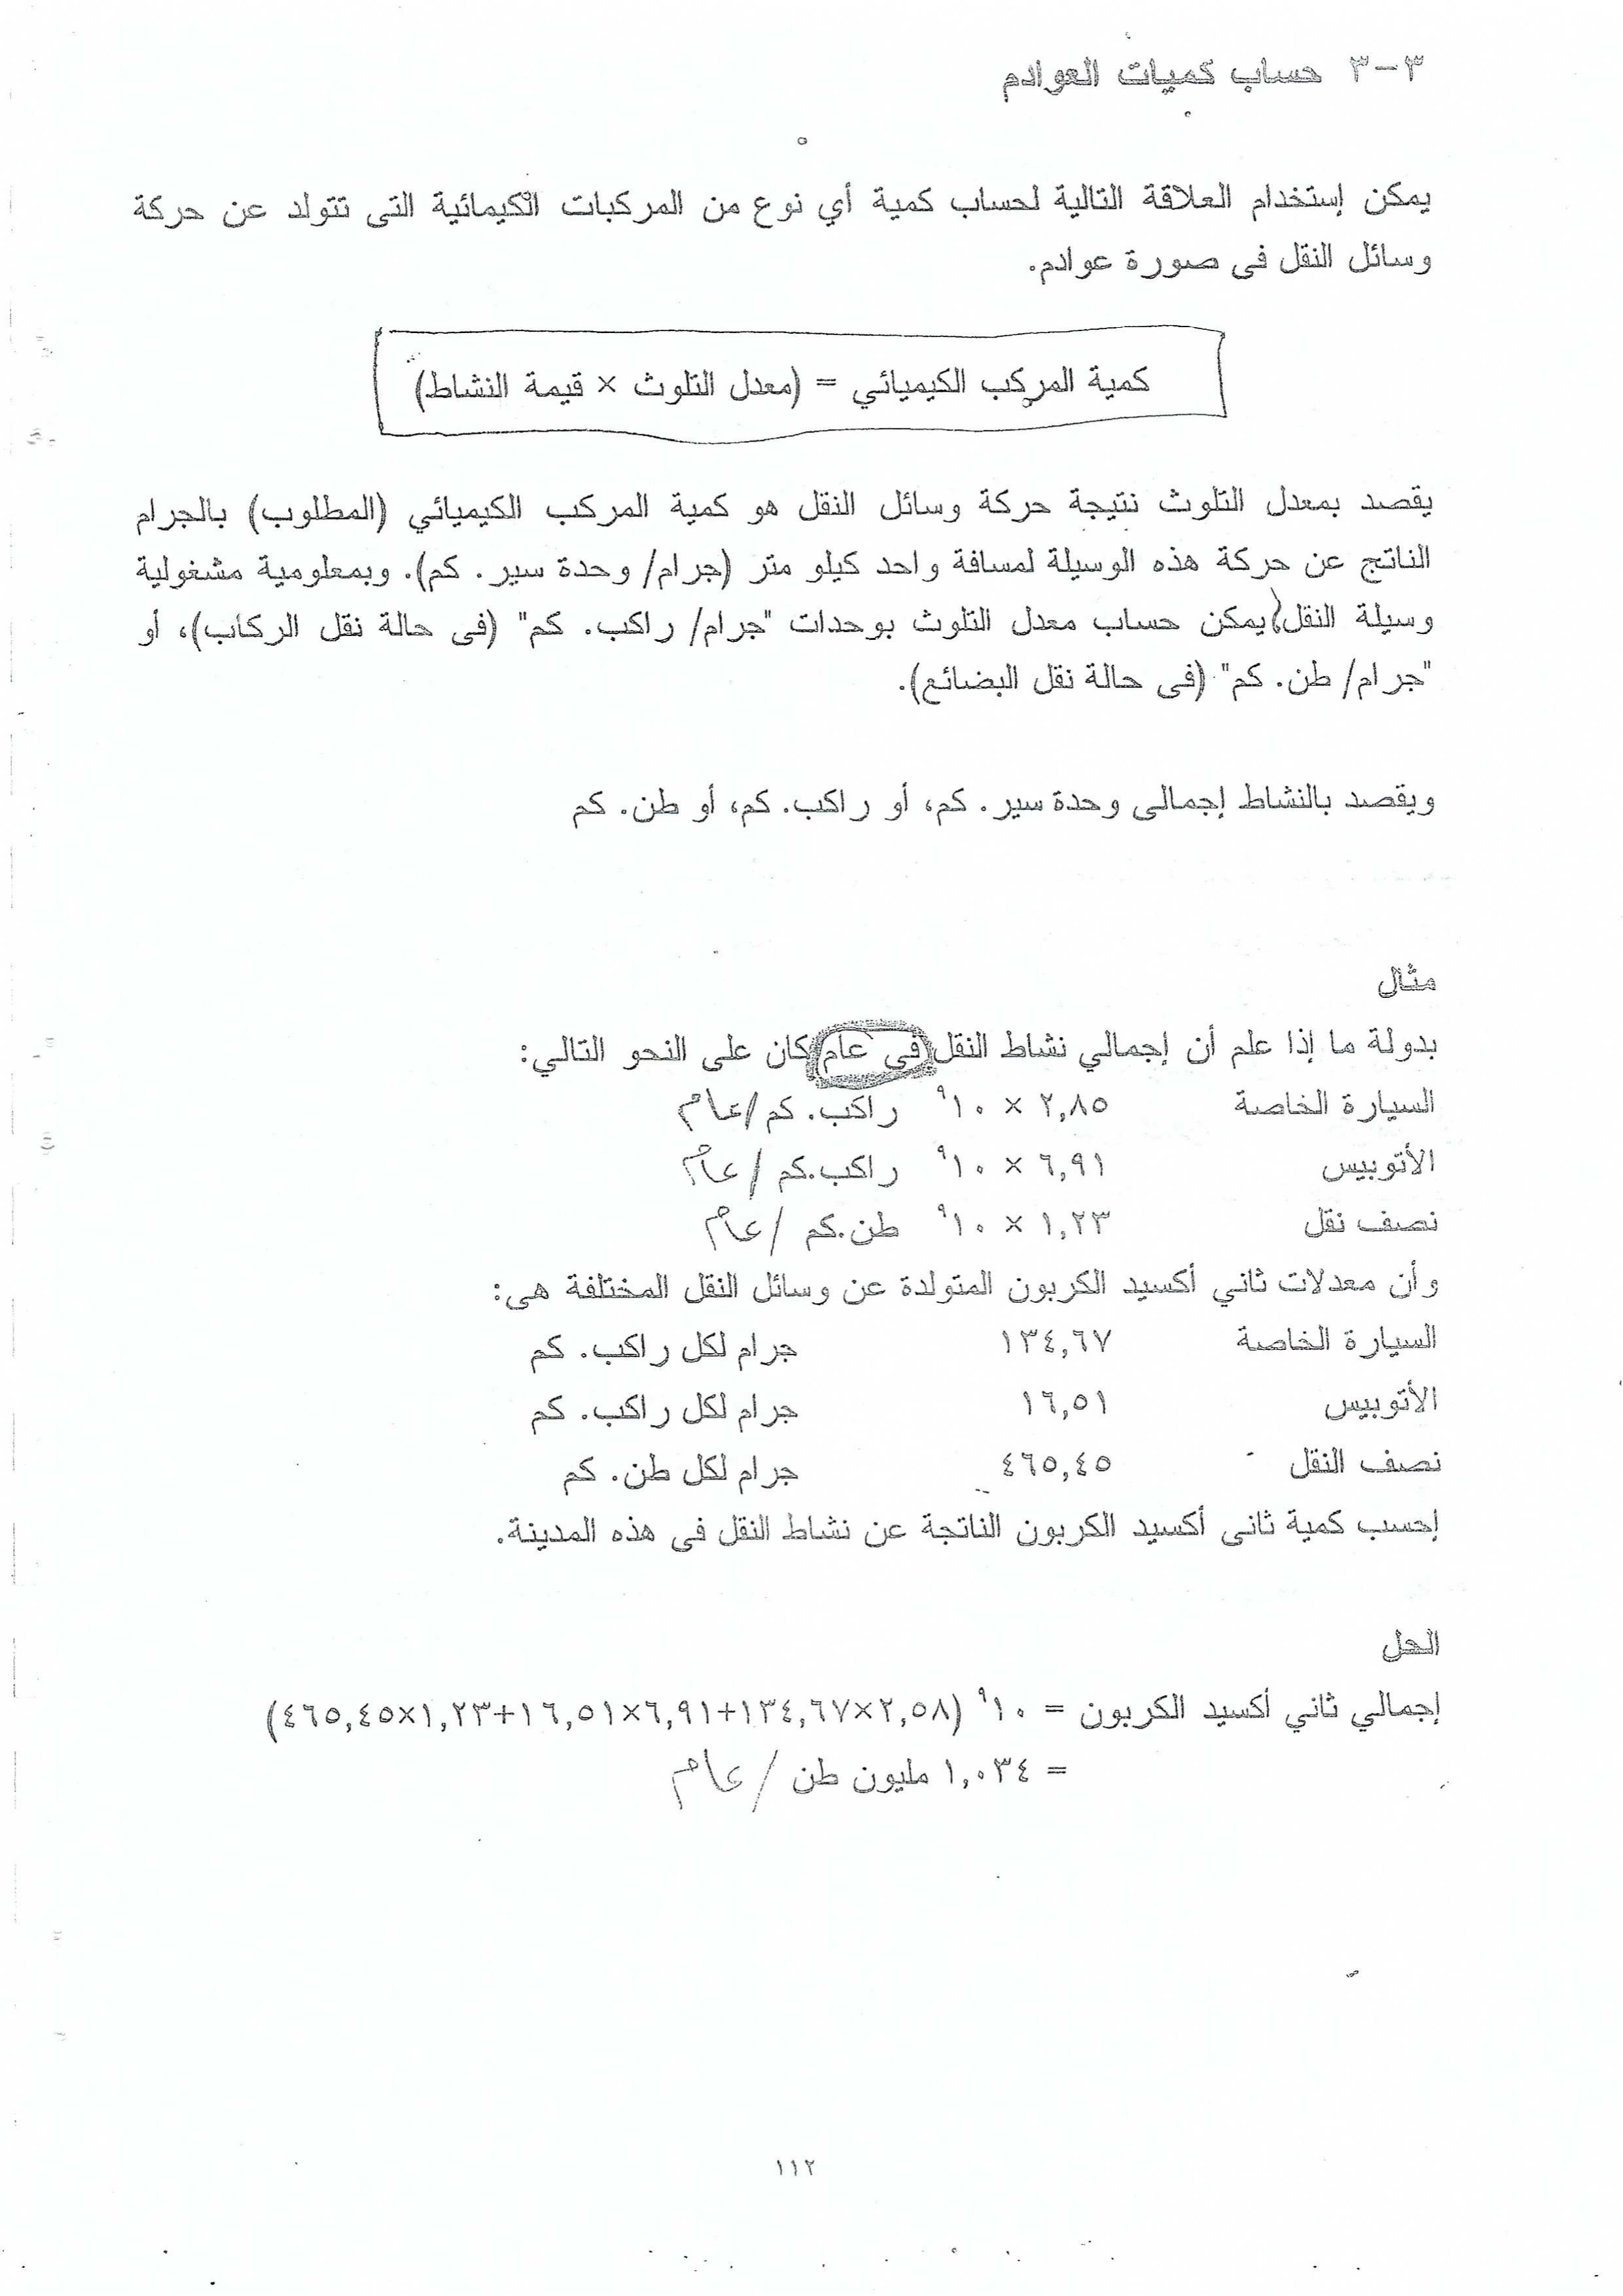 ٣-٣ حساب كميات العوادم
يمكن إستخدام العلاقة التالية لحساب كمية أي نوع من المركبات الكيمائية التى تتولد عن حركة
وسائل النقل فى صورة عوادم.
كمية المركب الكيميائي = (معدل التلوث × قيمة النشاط)
يقصد بمعدل التلوث نتيجة حركة وسائل النقل هو كمية المركب الكيميائي (المطلوب) بالجرام
الناتج عن حركة هذه الوسيلة لمسافة واحد كيلو متر (جرام/ وحدة سير. كم). وبمعلومية مشغولية
وسيلة النقل يمكن حساب معدل التلوث بوحدات "جرام/ راكب. كم" (فى حالة نقل الركاب)، أو
"جرام/ طن. كم" (فى حالة نقل البضائع).
ويقصد بالنشاط إجمالى وحدة سير. كم، أو راكب. كم، أو طن. كم
مثال
بدولة ما إذا علم أن إجمالي نشاط النقل في عام كان على النحو التالي:
السيارة الخاصة ٢,٨٥ × ١٠⁹ راكب. كم/عام
الأتوبيس ٦,٩١ × ١٠⁹ راكب.كم / عام
نصف نقل ١,٢٣ × ١٠⁹ طن.كم / عام
وأن معدلات ثاني أكسيد الكربون المتولدة عن وسائل النقل المختلفة هى:
السيارة الخاصة ١٣٤,٦٧ جرام لكل راكب. كم
الأتوبيس ١٦,٥١ جرام لكل راكب. كم
نصف النقل ٤٦٥,٤٥ جرام لكل طن. كم
إحسب كمية ثانى أكسيد الكربون الناتجة عن نشاط النقل فى هذه المدينة.
الحل
إجمالي ثاني أكسيد الكربون = ١٠⁹ (٢,٥٨×١٣٤,٦٧+٦,٩١×١٦,٥١+١,٢٣×٤٦٥,٤٥)
= ١,٠٣٤ مليون طن / عام
١١٢